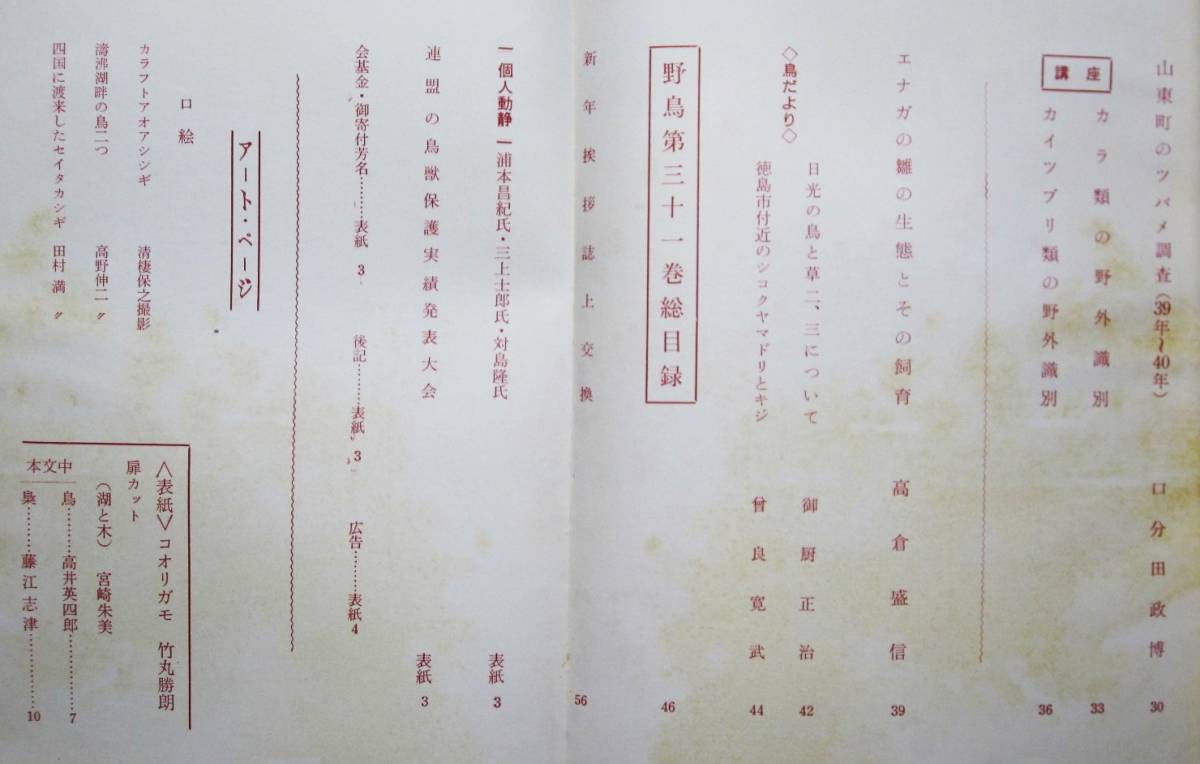 山東町のツバメ調査（39年〜40年） 口分田政博 30
講座
カラ類の野外識別 33
カイツブリ類の野外識別 36
エナガの雛の生態とその飼育 高倉盛信 39
◇鳥だより◇
日光の鳥と草二、三について 御厨正治 42
徳島市付近のシコクヤマドリとキジ 曾良寛武 44
野鳥第三十一巻総目録 46
新年挨拶誌上交換 56
―個人動静―浦本昌紀氏・三上士郎氏・対島隆氏 表紙3
連盟の鳥獣保護実績発表大会 表紙3
会基金・御寄付芳名………表紙3 後記………表紙3 広告………表紙4
アート・ページ
口絵
カラフトアオアシシギ 清棲保之撮影
濤沸湖畔の鳥二つ 高野伸二 〃
四国に渡来したセイタカシギ 田村満 〃
〈表紙〉コオリガモ 竹丸勝朗
扉カット
（湖と木） 宮崎朱美
本文中
鳥………高井英四郎………7
梟………藤江志津………10